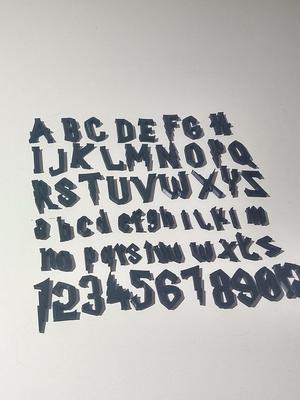 A B C D E F G H
I J K L M N O P Q
R S T U V W X Y Z
a b c d e f g h i j k l m
n o p q r s t u v w x y z
1 2 3 4 5 6 7 8 9 0